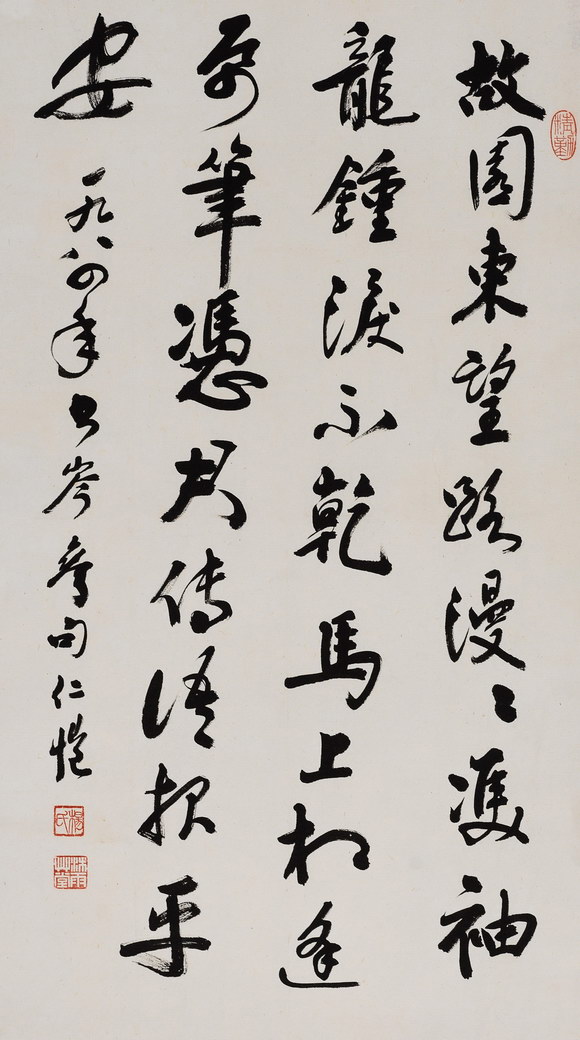 故園東望路漫〻雙袖
龍鍾淚不乾馬上相逢
筆憑君傳語報平
安
一九八四年書岑參句仁愷
楊氏